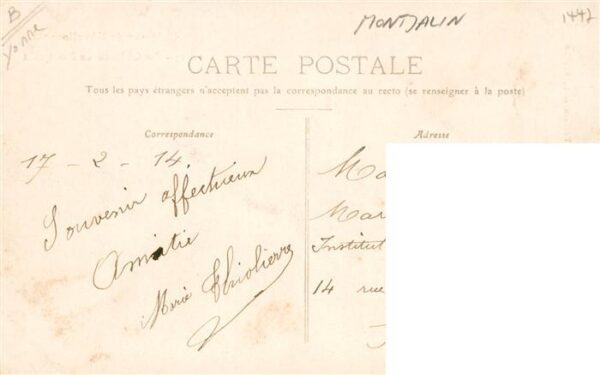 B
Yonne
MONTJALIN
1442
CARTE POSTALE
Tous les pays étrangers n'acceptent pas la correspondance au recto (se renseigner à la poste)
Correspondance
17 - 2 - 14
Souvenir affectueux
Amitié
Marie Thiolierre
Adresse
Ma
Mar
Institut
14 rue